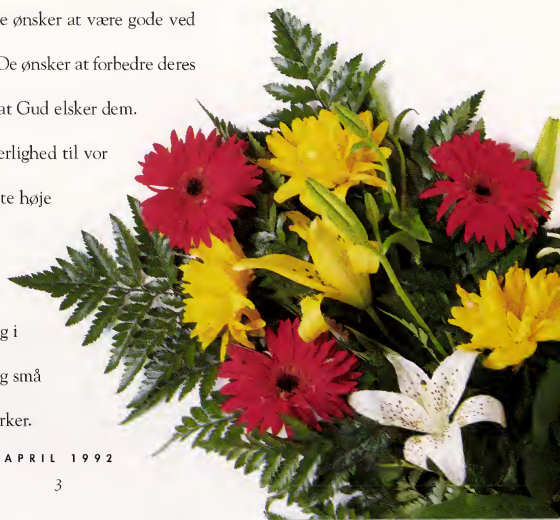 e ønsker at være gode ved
De ønsker at forbedre deres
at Gud elsker dem.
erlighed til vor
te høje
g i
g små
rker.
APRIL 1992
3